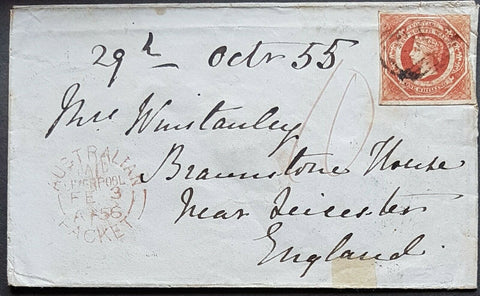 29th Octr 55
Mrs Winstanley
Braunstone House
Near Leicester
England.
AUSTRALIAN
PAID
LIVERPOOL
FE 3
A 56
PACKET